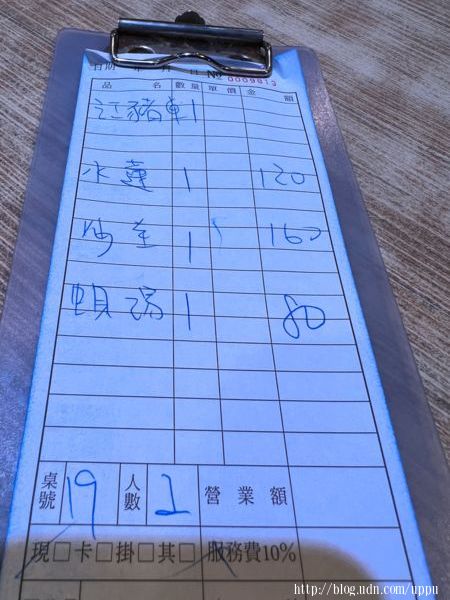 日期 年 月 日 No 0009813
品 名 數量 單價 金 額
江豬車 1
水蓮 1 120
沙茎 1 160
蜆湯 1 80
桌號 19 人數 2 營業額
現□卡□掛□其□ 服務費10%
http://blog.udn.com/uppu